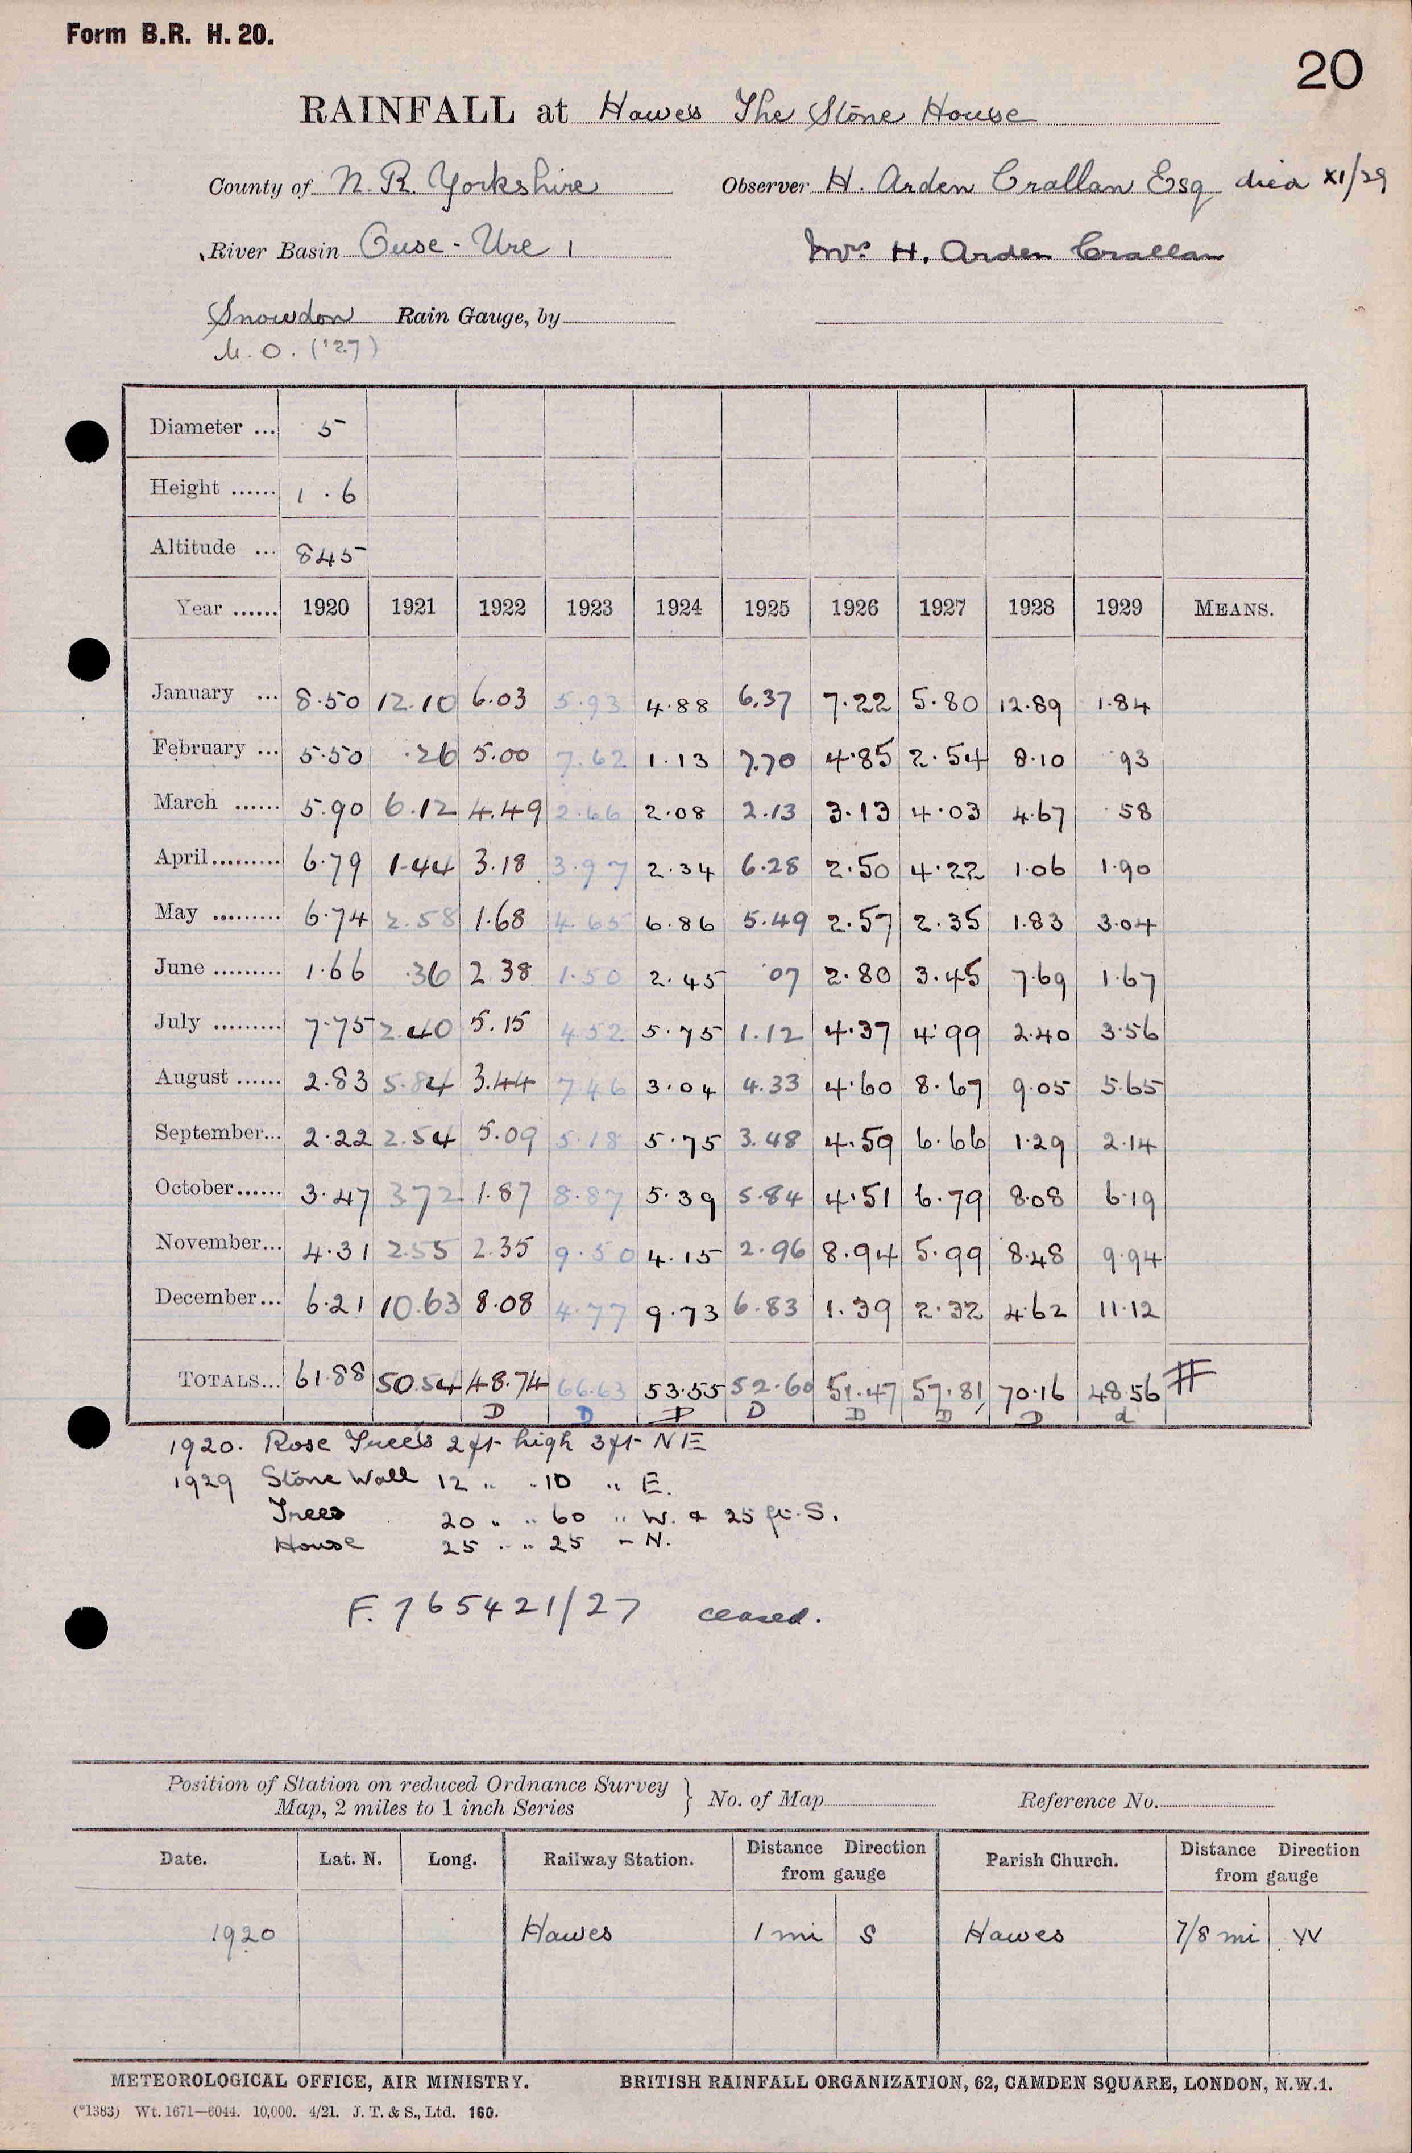 Form B.R. H. 20.
20
RAINFALL at Hawes The Stone House
County of N. R. Yorkshire Observer H. Arden Crallan Esq died XI/29
River Basin Ouse - Ure 1 Mrs H. Arden Crallan
Snowdon Rain Gauge, by
M.O. ('27)
Diameter ... 5
Height ...... 1.6
Altitude ... 845
Year ...... 1920 1921 1922 1923 1924 1925 1926 1927 1928 1929 MEANS.
January ... 8.50 12.10 6.03 5.93 4.88 6.37 7.22 5.80 12.89 1.84
February ... 5.50 .26 5.00 7.62 1.13 7.70 4.85 2.54 8.10 .93
March ...... 5.90 6.12 4.49 2.66 2.08 2.13 3.13 4.03 4.67 .58
April......... 6.79 1.44 3.18 3.97 2.34 6.28 2.50 4.22 1.06 1.90
May ......... 6.74 2.58 1.68 4.65 6.86 5.49 2.57 2.35 1.83 3.04
June ......... 1.66 .36 2.38 1.50 2.45 .07 2.80 3.45 7.69 1.67
July ......... 7.75 2.40 5.15 4.52 5.75 1.12 4.37 4.99 2.40 3.56
August ...... 2.83 5.84 3.44 7.46 3.04 4.33 4.60 8.67 9.05 5.65
September... 2.22 2.54 5.09 5.18 5.75 3.48 4.59 6.66 1.29 2.14
October...... 3.47 3.72 1.87 8.87 5.39 5.84 4.51 6.79 8.08 6.19
November... 4.31 2.55 2.35 9.50 4.15 2.96 8.94 5.99 8.48 9.94
December... 6.21 10.63 8.08 4.77 9.73 6.83 1.39 2.32 4.62 11.12
TOTALS... 61.88 50.54 48.74 66.63 53.55 52.60 51.47 57.81 70.16 48.56 #
D D D D D D D d
1920. Rose Trees 2 ft high 3 ft NE
1929 Stone Wall 12 " " 10 " E.
Trees 20 " " 60 " W. & 25 ft. S.
House 25 " " 25 - N.
F. 765421/27 ceased.
Position of Station on reduced Ordnance Survey
Map, 2 miles to 1 inch Series } No. of Map Reference No.
Date. Lat. N. Long. Railway Station. Distance Direction from gauge Parish Church. Distance Direction from gauge
1920 Hawes 1 mi S Hawes 7/8 mi W
METEOROLOGICAL OFFICE, AIR MINISTRY. BRITISH RAINFALL ORGANIZATION, 62, CAMDEN SQUARE, LONDON, N.W.1.
(*1383) Wt. 1671—6044. 10,000. 4/21. J. T. & S., Ltd. 160.